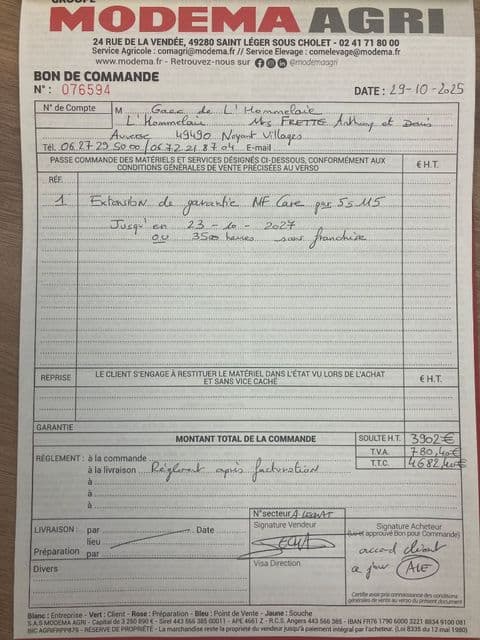 GROUPE
MODEMA AGRI
24 RUE DE LA VENDÉE, 49280 SAINT LÉGER SOUS CHOLET - 02 41 71 80 00
Service Agricole : comagri@modema.fr // Service Elevage : comelevage@modema.fr
www.modema.fr - Retrouvez-nous sur @modemaagri
BON DE COMMANDE
N° : 076594
DATE : 29-10-2025
N° de Compte
M Gaec de L'Hommelaie
L'Hommelaie Mrs FRETTE Anthony et Denis
Auverse 49490 Noyant Villages
Tél. 06.27 29 50 00 / 06 72 21 87 04 E-mail
PASSE COMMANDE DES MATÉRIELS ET SERVICES DÉSIGNÉS CI-DESSOUS, CONFORMÉMENT AUX
CONDITIONS GÉNÉRALES DE VENTE PRÉCISÉES AU VERSO
€ H.T.
RÉF.
1 Extension de garantie MF Care pour 5S 115
Jusqu'en 23 - 10 - 2027
ou 3500 heures sans franchise
REPRISE
LE CLIENT S'ENGAGE À RESTITUER LE MATÉRIEL DANS L'ÉTAT VU LORS DE L'ACHAT
ET SANS VICE CACHÉ
€ H.T.
GARANTIE
MONTANT TOTAL DE LA COMMANDE
SOULTE H.T. 3902€
T.V.A. 780,40€
T.T.C. 4682,40€
RÈGLEMENT : à la commande
à la livraison Réglement après facturation
à
à
à
N° secteur
LIVRAISON : par Date
lieu
Préparation par
Divers
Signature Vendeur
Visa Direction
Signature Acheteur
(Lu et approuvé Bon pour Commande)
accord client
ce jour
Certifie avoir pris connaissance des conditions
générales de vente au verso du présent document
Blanc : Entreprise - Vert : Client - Rose : Préparation - Bleu : Point de Vente - Jaune : Souche
S.A.S MODEMA AGRI - Capital de 3 280 890 € - Siret 443 566 385 00011 - APE 4661 Z - R.C.S. Angers 443 566 385 - IBAN FR76 1790 6000 3221 8834 9100 081
BIC AGRIFRPP879 - RÉSERVE DE PROPRIÉTÉ - La marchandise reste la propriété du vendeur jusqu'à paiement intégral par l'acheteur. (Loi 8335 du 12 mai 1980)